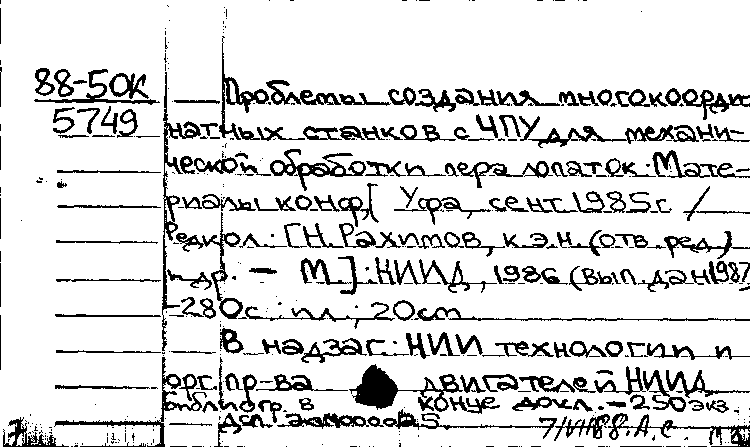 88-50К
5749
Проблемы создания многокоорди
натных станков с ЧПУ для механи-
ческой обработки пера лопаток: Мате-
риалы конф, [Уфа, сент. 1985г. /
Редкол.: Г.Н. Рахимов, к.э.н. (отв. ред.)
и др. — М.]: НИИД, 1986 (вып. дан 1987)
-280с.: ил.; 20см.
В надзаг.: НИИ технологии и
орг. пр-ва двигателей НИИД
Библиогр. в конце докл. — 250 экз
ДСП.